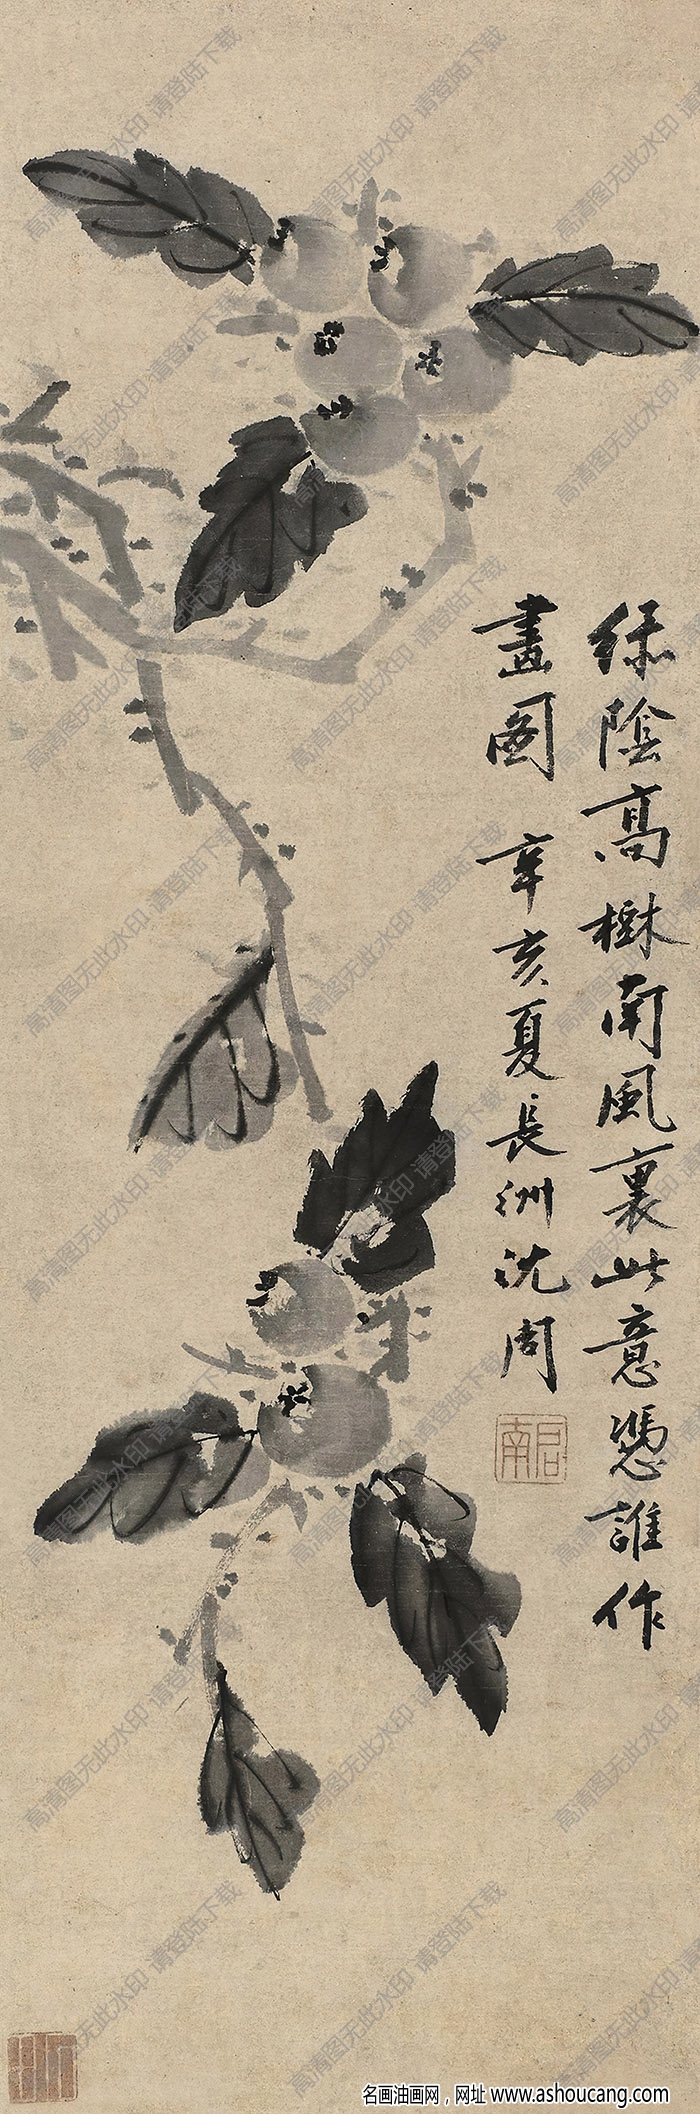 绿陰高樹南風裏此意憑誰作
畫図 辛亥夏長洲沈周
啟南
高清图无此水印 请登陆下载
名画油画网，网址 www.ashoucang.com